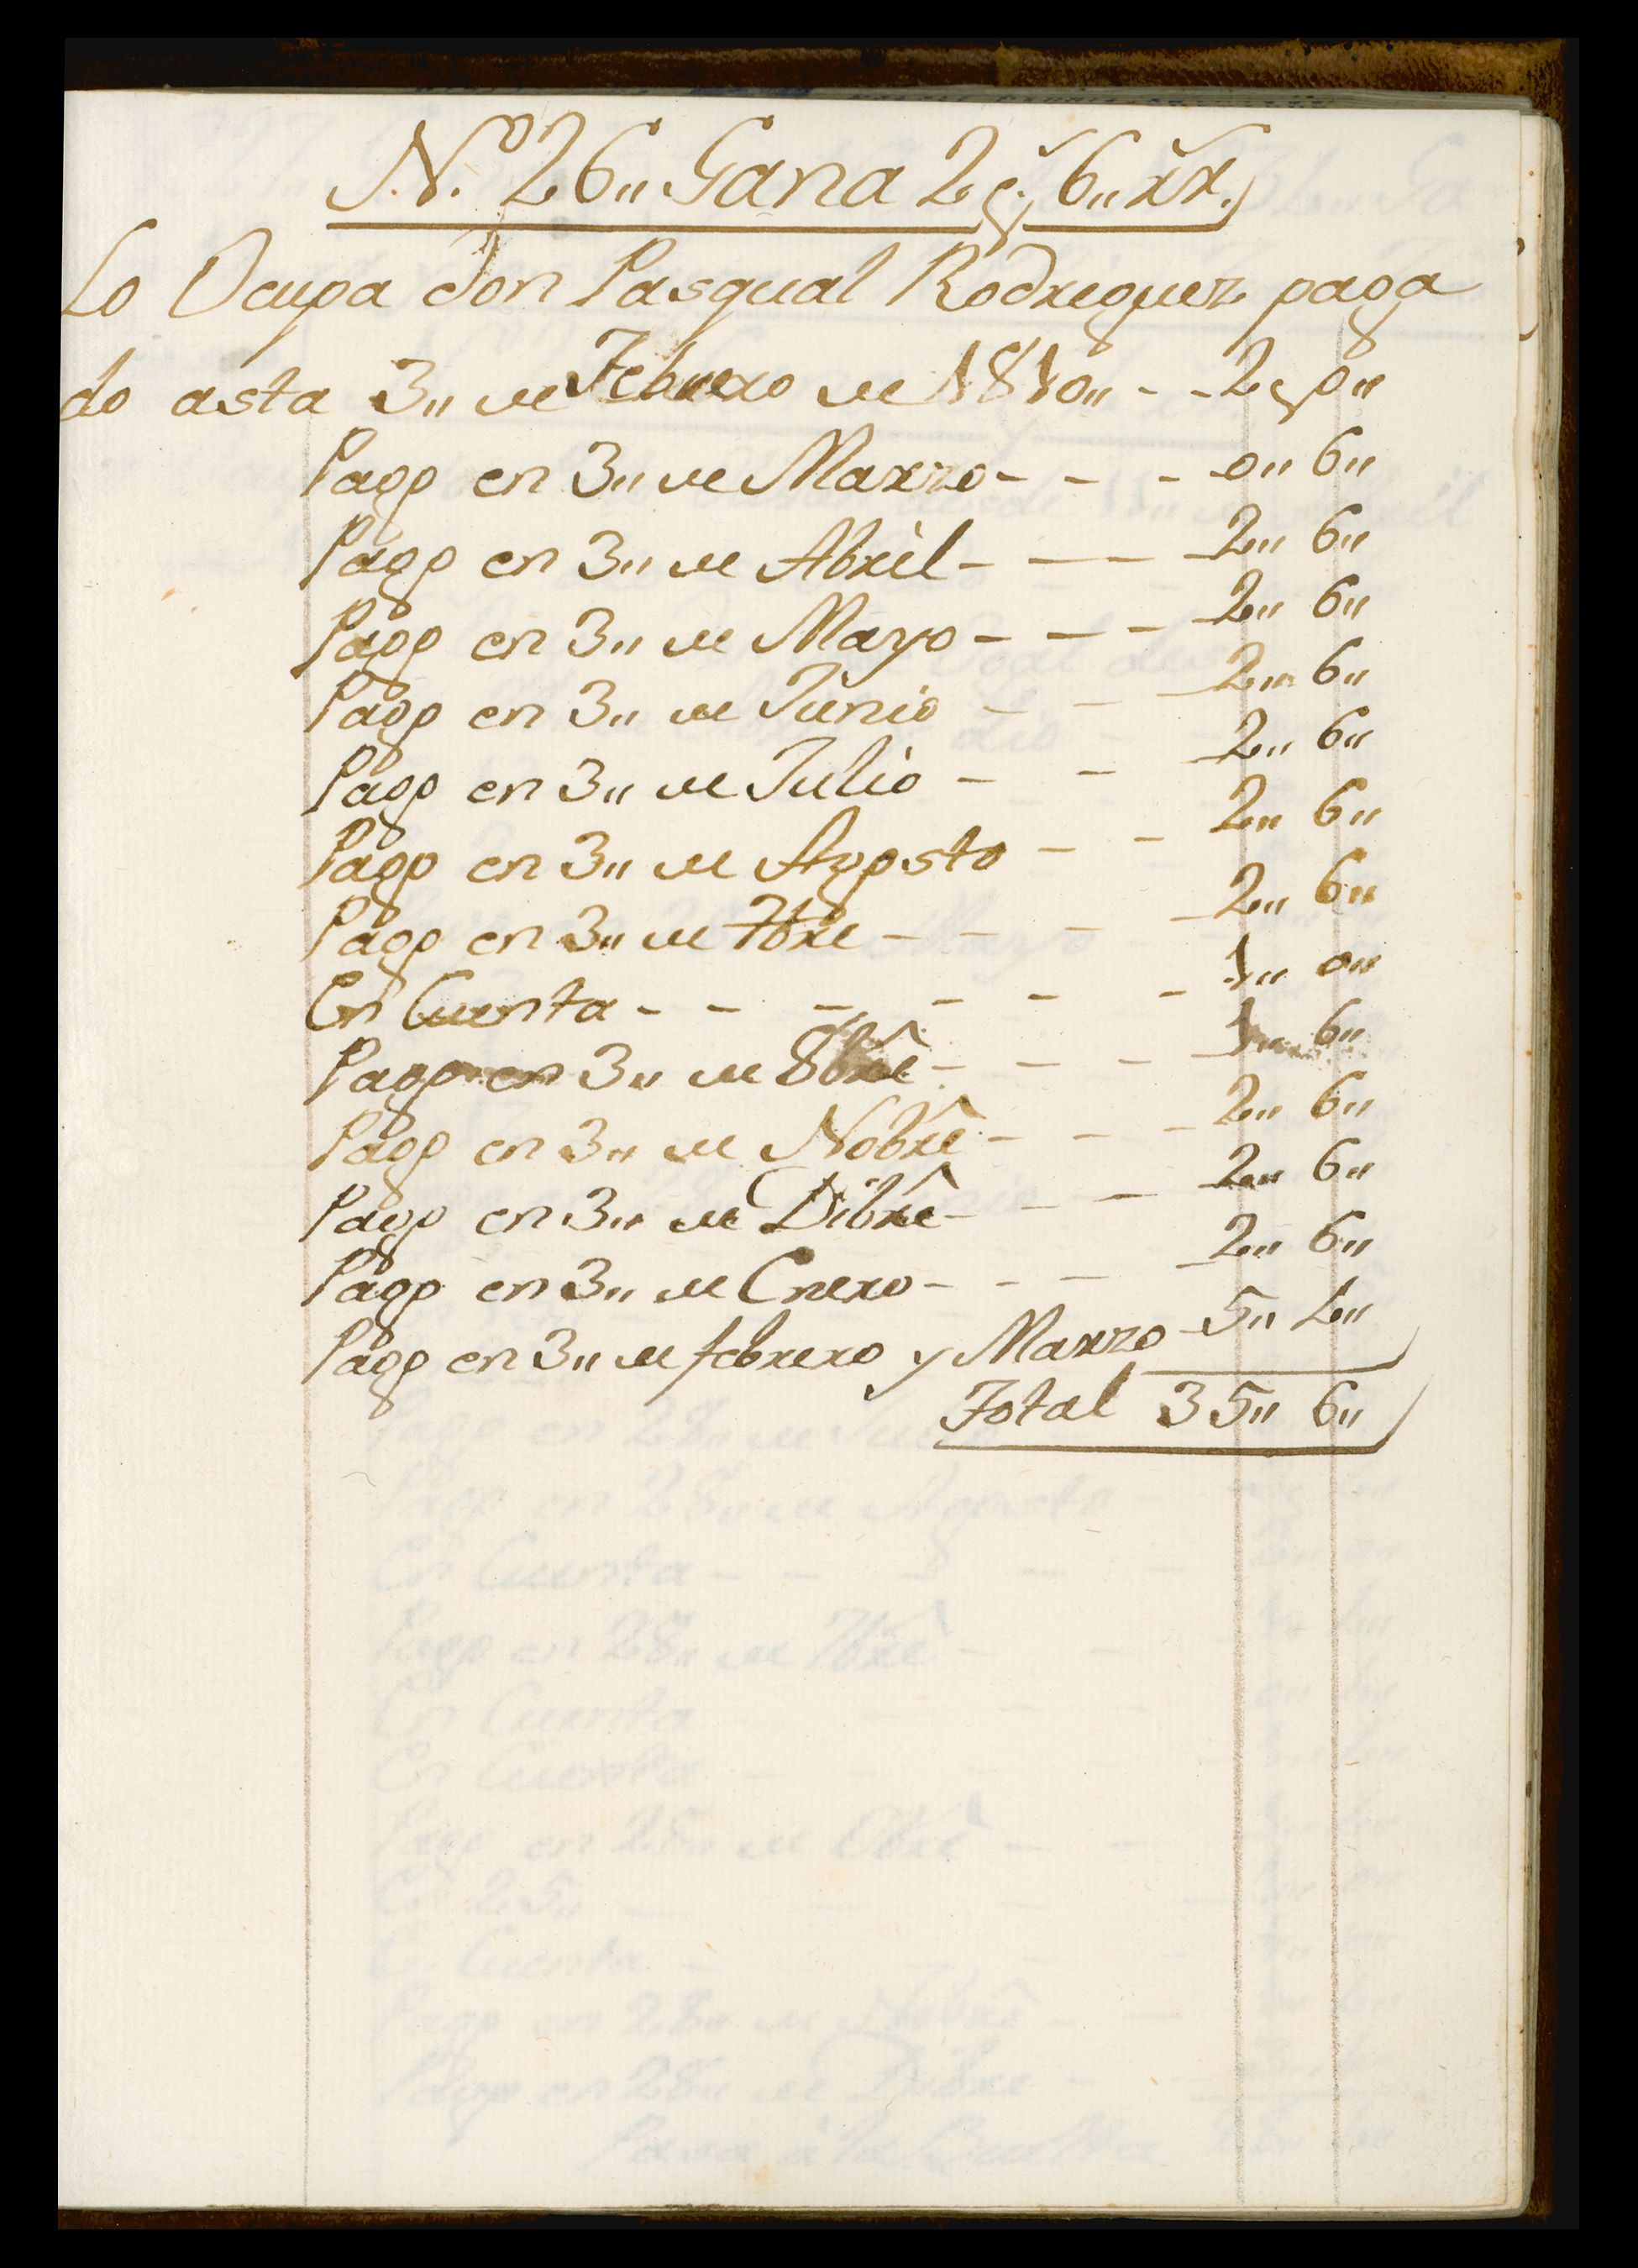 N.º 26,, Gana 2 p.s 6,, rr.s
Lo Ocupa don Pasqual Rodriguez paga
do asta 3,, de Febrero de 1810,, - - 2 p 0,,
Pago en 3,, de Marzo - - - 0,, 6,,
Pago en 3,, de Abril - - - 2,, 6,,
Pago en 3,, de Mayo - - - 2,, 6,,
Pago en 3,, de Junio - - - 2,, 6,,
Pago en 3,, de Julio - - - 2,, 6,,
Pago en 3,, de Agosto - - 2,, 6,,
Pago en 3,, de 7bre - - - 2,, 6,,
En Cuenta - - - - - - 1,, 0,,
Pago en 3,, de 8bre - - - 1,, 6,,
Pago en 3,, de Nobre - - - 2,, 6,,
Pago en 3,, de Dibre - - - 2,, 6,,
Pago en 3,, de Enero - - - 2,, 6,,
Pago en 3,, de febrero y Marzo 5,, 4,,
Total 35,, 6,,